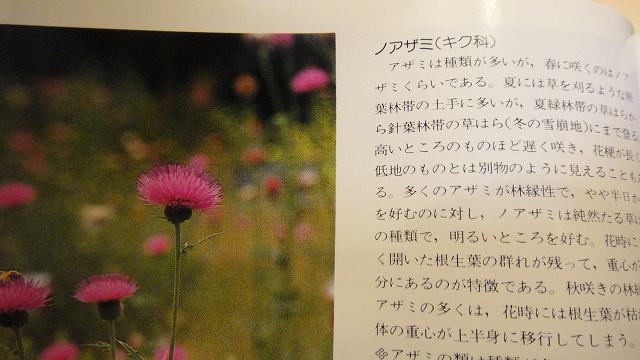 ノアザミ(キク科)
アザミは種類が多いが，春に咲くのはノア
ザミくらいである。夏には草を刈るような
葉林帯の土手に多いが，夏緑林帯の草はらか
ら針葉林帯の草はら(冬の雪崩地)にまで登る
高いところのものほど遅く咲き，花梗が長く
低地のものとは別物のように見えることも
る。多くのアザミが林縁性で，やや半日か
を好むのに対し，ノアザミは純然たる草は
の種類で，明るいところを好む。花時に
く開いた根生葉の群れが残って，重心が
分にあるのが特徴である。秋咲きの林縁
アザミの多くは，花時には根生葉が枯
体の重心が上半身に移行してしまう。
※アザミの類は種類が